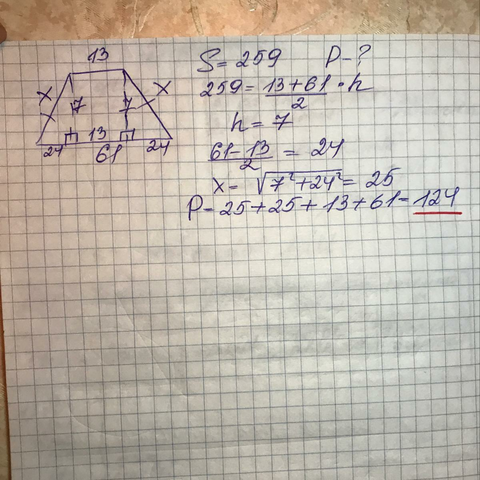 13
x x
7 7
24 13 24
61
S = 259 P - ?
259 = \frac{13+61}{2} · h
h = 7
\frac{61-13}{2} = 24
x = \sqrt{7^2+24^2} = 25
P = 25 + 25 + 13 + 61 = 124